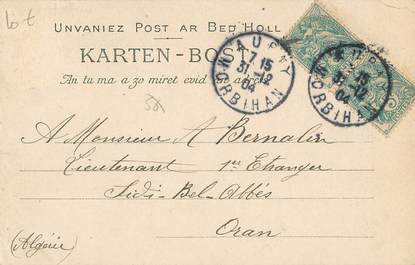 lot
UNVANIEZ POST AR BED HOLL
KARTEN-BOST
An tu ma a zo miret evid an adres
MAURON
7 15
31 12
04
MORBIHAN
7 15
31 12
04
MORBIHAN
58
A Monsieur A Bernalin
Lieutenant 1er Etranger
Sidi-Bel-Abbés
Oran
(Algérie)